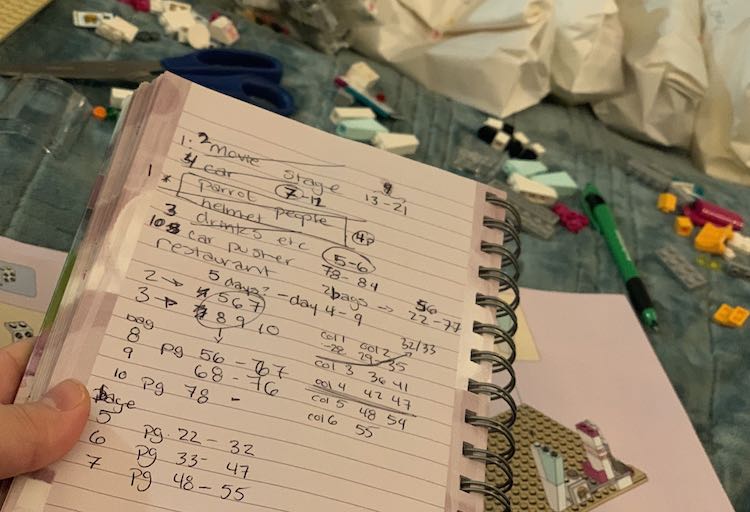 1. 2 movie stage
4 car 7-12 13-21
1 * parrot
helmet people 48
3 drinks etc 5-6
10 8 car pusher 78-84
restaurant 2 bags → 56
5 days? - day 4-9 22-77
2 → 4 5 6 7
3 → 7 8 9 10
col 1 col 2 32/33
-28 29-35
bag
8 pg 56 - 67
9 68 - 76
10 pg 78 -
col 3 36 41
col 4 42 47
col 5 48 54
col 6 55
page
5 pg. 22 - 32
6 pg 33 - 47
7 pg 48 - 55